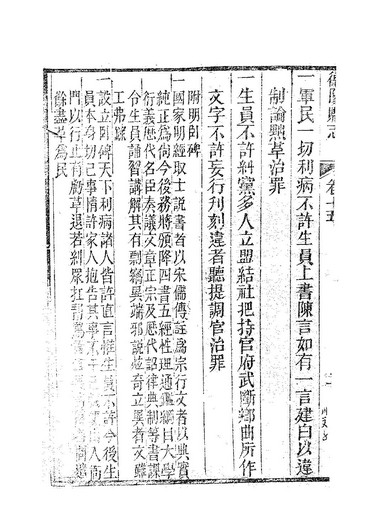 德陽縣志
卷十五
一軍民一切利病不許生員上書陳言如有一言建白以違
制論黜革治罪
一生員不許糾黨多人立盟結社把持官府武斷鄉曲所作
文字不許妄行刋刻違者聽提調官治罪
附明卧碑
一國家明經取士說書者以宋儒傳註爲宗行文者以典實
純正爲尚今後務將頒降四書五經性理通鑑綱目大學
衍義歷代名臣奏議文章正宗及歷代詔律典制等書課
令生員誦習講解其有剽竊異端邪說炫奇立異者文雖
工弗錄
一設立卧碑天下利病諸人皆許直言惟生員不許今後生
員本身切己事情許家人抱告其事不干己
門以行止有虧革退若糾眾扛
餘盡革爲民